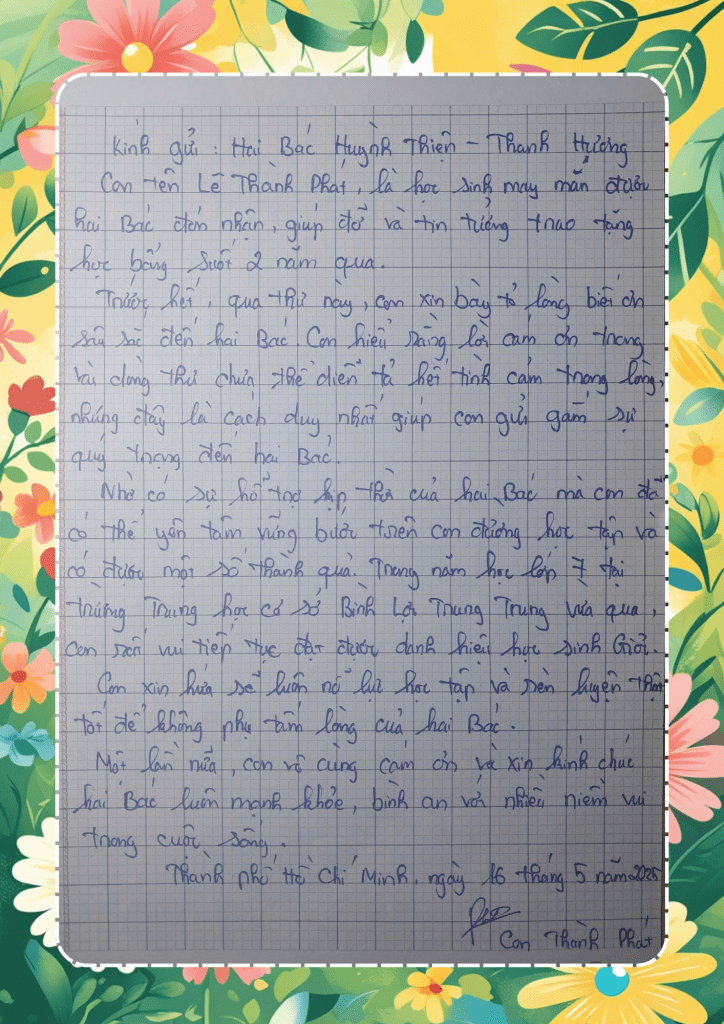 Kính gửi : Hai Bác Huỳnh Thiện - Thanh Hương
Con tên Lê Thành Phát, là học sinh may mắn được
hai Bác đón nhận, giúp đỡ và tin tưởng trao tặng
học bổng suốt 2 năm qua.
Trước hết, qua thư này, con xin bày tỏ lòng biết ơn
sâu sắc đến hai Bác. Con hiểu rằng lời cảm ơn trong
vài dòng thư chưa thể diễn tả hết tình cảm trong lòng,
nhưng đây là cách duy nhất giúp con gửi gắm sự
quý trọng đến hai Bác.
Nhờ có sự hỗ trợ kịp thời của hai Bác mà con đã
có thể yên tâm vững bước trên con đường học tập và
có được một số thành quả. Trong năm học lớp 7 tại
trường Trung học cơ sở Bình Lợi Trung Trung vừa qua,
con rất vui tiếp tục đạt được danh hiệu học sinh Giỏi.
Con xin hứa sẽ luôn nỗ lực học tập và rèn luyện thật
tốt để không phụ tấm lòng của hai Bác.
Một lần nữa, con vô cùng cám ơn và xin kính chúc
hai Bác luôn mạnh khỏe, bình an với nhiều niềm vui
trong cuộc sống.
Thành phố Hồ Chí Minh, ngày 16 tháng 5 năm 2025
Con Thành Phát